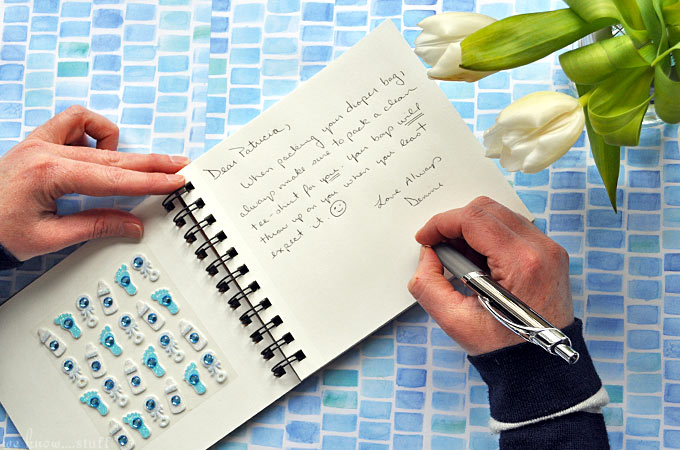 Dear Patricia,
When packing your diaper bag,
always make sure to pack a clean
tee-shirt for you - your baby will
throw up on you when you least
expect it. ☺
Love Always
Deanne
we know....stuff